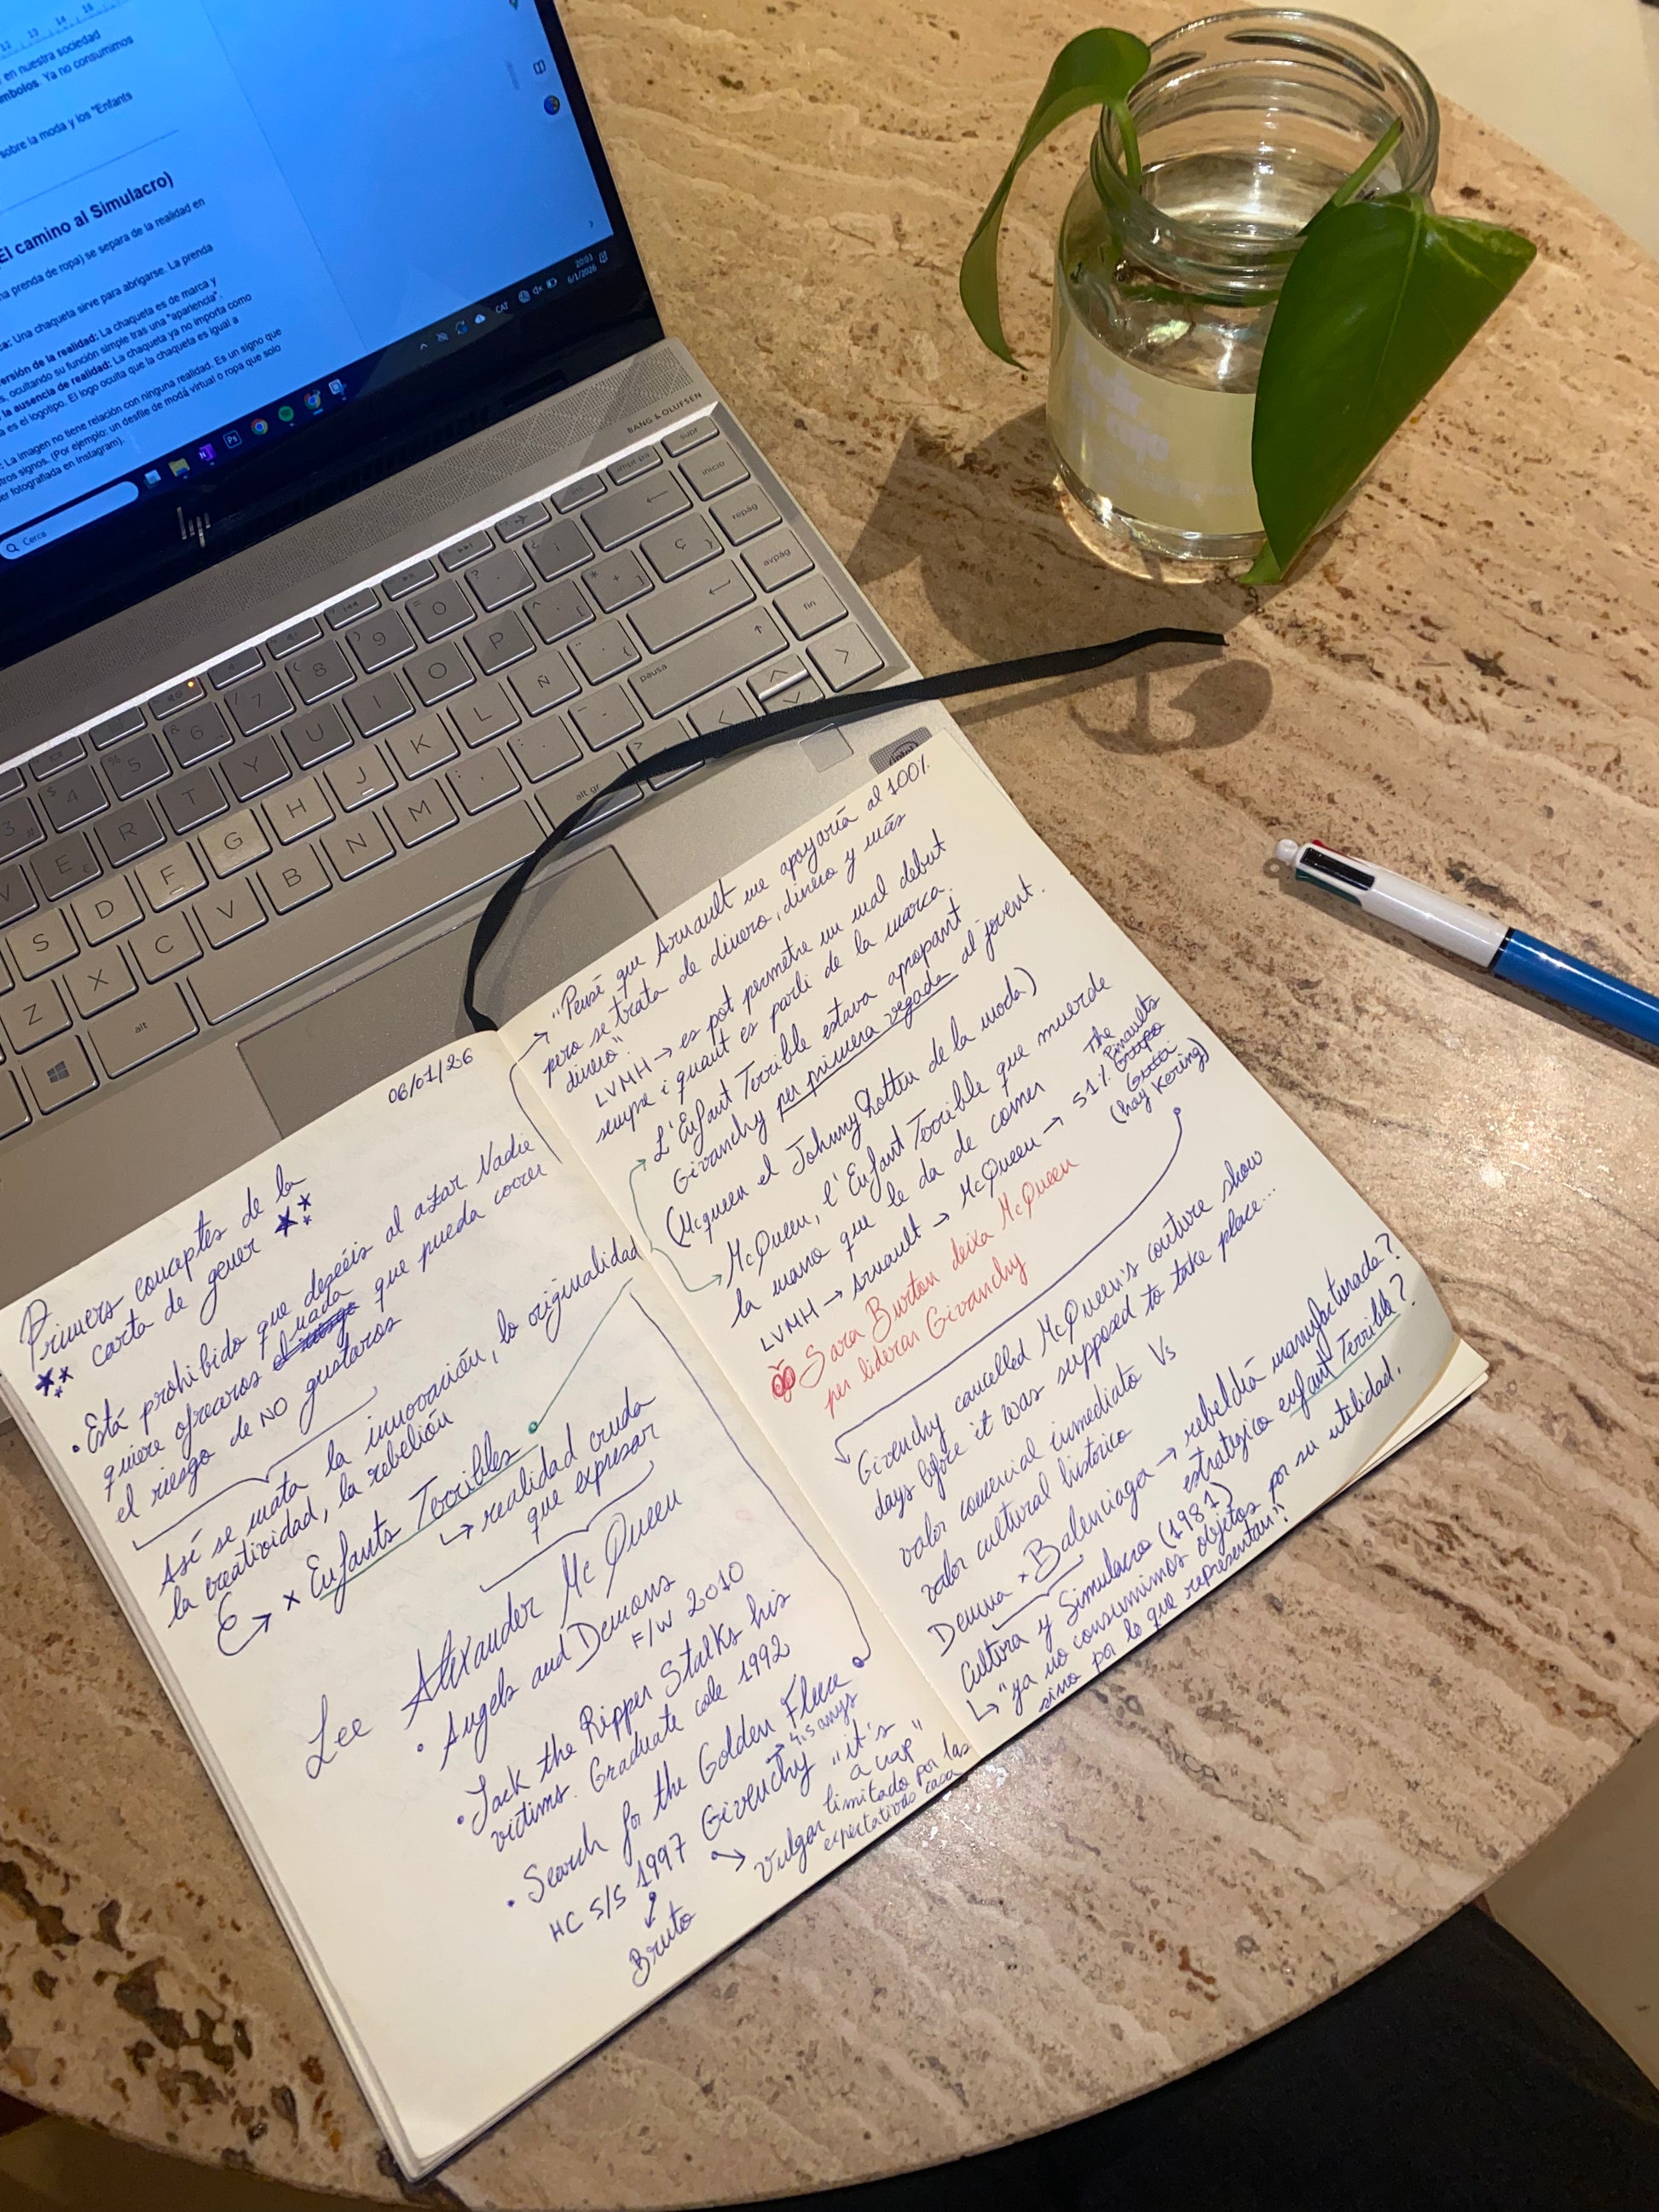 12 13 14 15
en nuestra sociedad
mbolos. Ya no consumimos
sobre la moda y los "Enfants
El camino al Simulacro)
na prenda de ropa) se separa de la realidad en
ca: Una chaqueta sirve para abrigarse. La prenda
ersión de la realidad: La chaqueta es de marca y
s, ocultando su función simple tras una "apariencia".
la ausencia de realidad: La chaqueta ya no importa como
a es el logotipo. El logo oculta que la chaqueta es igual a
: La imagen no tiene relación con ninguna realidad. Es un signo que
tros signos. (Por ejemplo: un desfile de moda virtual o ropa que solo
er fotografiada en Instagram).
Cerca
Ps
CAT
20:03
6/1/2026
hp
BANG & OLUFSEN
impr pa supr
inicio
7 8 9 0 ? ¿ ¡
repág
4 5 6
avpág
E R T Y U I O P
fin
S D F G H J K L Ñ
pausa
Z X C V B N M
alt
alt gr
intel
06/01/26
Primers conceptes de la
carta de gener
• Está prohibido que dejéis al azar Nadie
quiere ofreceros nada que pueda correr
el riesgo de NO gustaros
Así se mata la innovación, la originalidad
la creatividad, la rebelión
x Enfants Terribles
↳ realidad cruda
que expresar
Lee Alexander McQueen
• Angels and Demons
F/W 2010
• Jack the Ripper Stalks his
victims. Graduate cole 1992
• Search for the Golden Fleece
→ 4'5 anys
HC S/S 1997 Givenchy "it's
a crap"
Bruto
→ Vulgar limitado por las
expectativas casa
→ "Pensé que Arnault me apoyaría al 100%.
pero se trata de dinero, dinero y más
dinero".
LVMH → es pot permetre un mal debut
sempre i quant es parli de la marca.
L'Enfant Terrible estava apropant
Givanchy per primera vegada al jovent.
(Mcqueen el Johnny Rotten de la moda)
McQueen, l'Enfant Terrible que muerde
la mano que le da de comer
LVMH → Arnault → McQueen → 51%
The
Pinaults
Grupo
Gucci
(hoy Kering)
Sara Burton deixa McQueen
per liderar Givanchy
Givenchy cancelled McQueen's couture show
days before it was supposed to take place...
valor comercial inmediato Vs
valor cultural histórico
Demna x Balenciaga → rebeldía manufacturada?
estratégico enfant Terrible?
Cultura y Simulacro (1981)
↳ "ya no consumimos objetos por su utilidad,
sino por lo que representan"